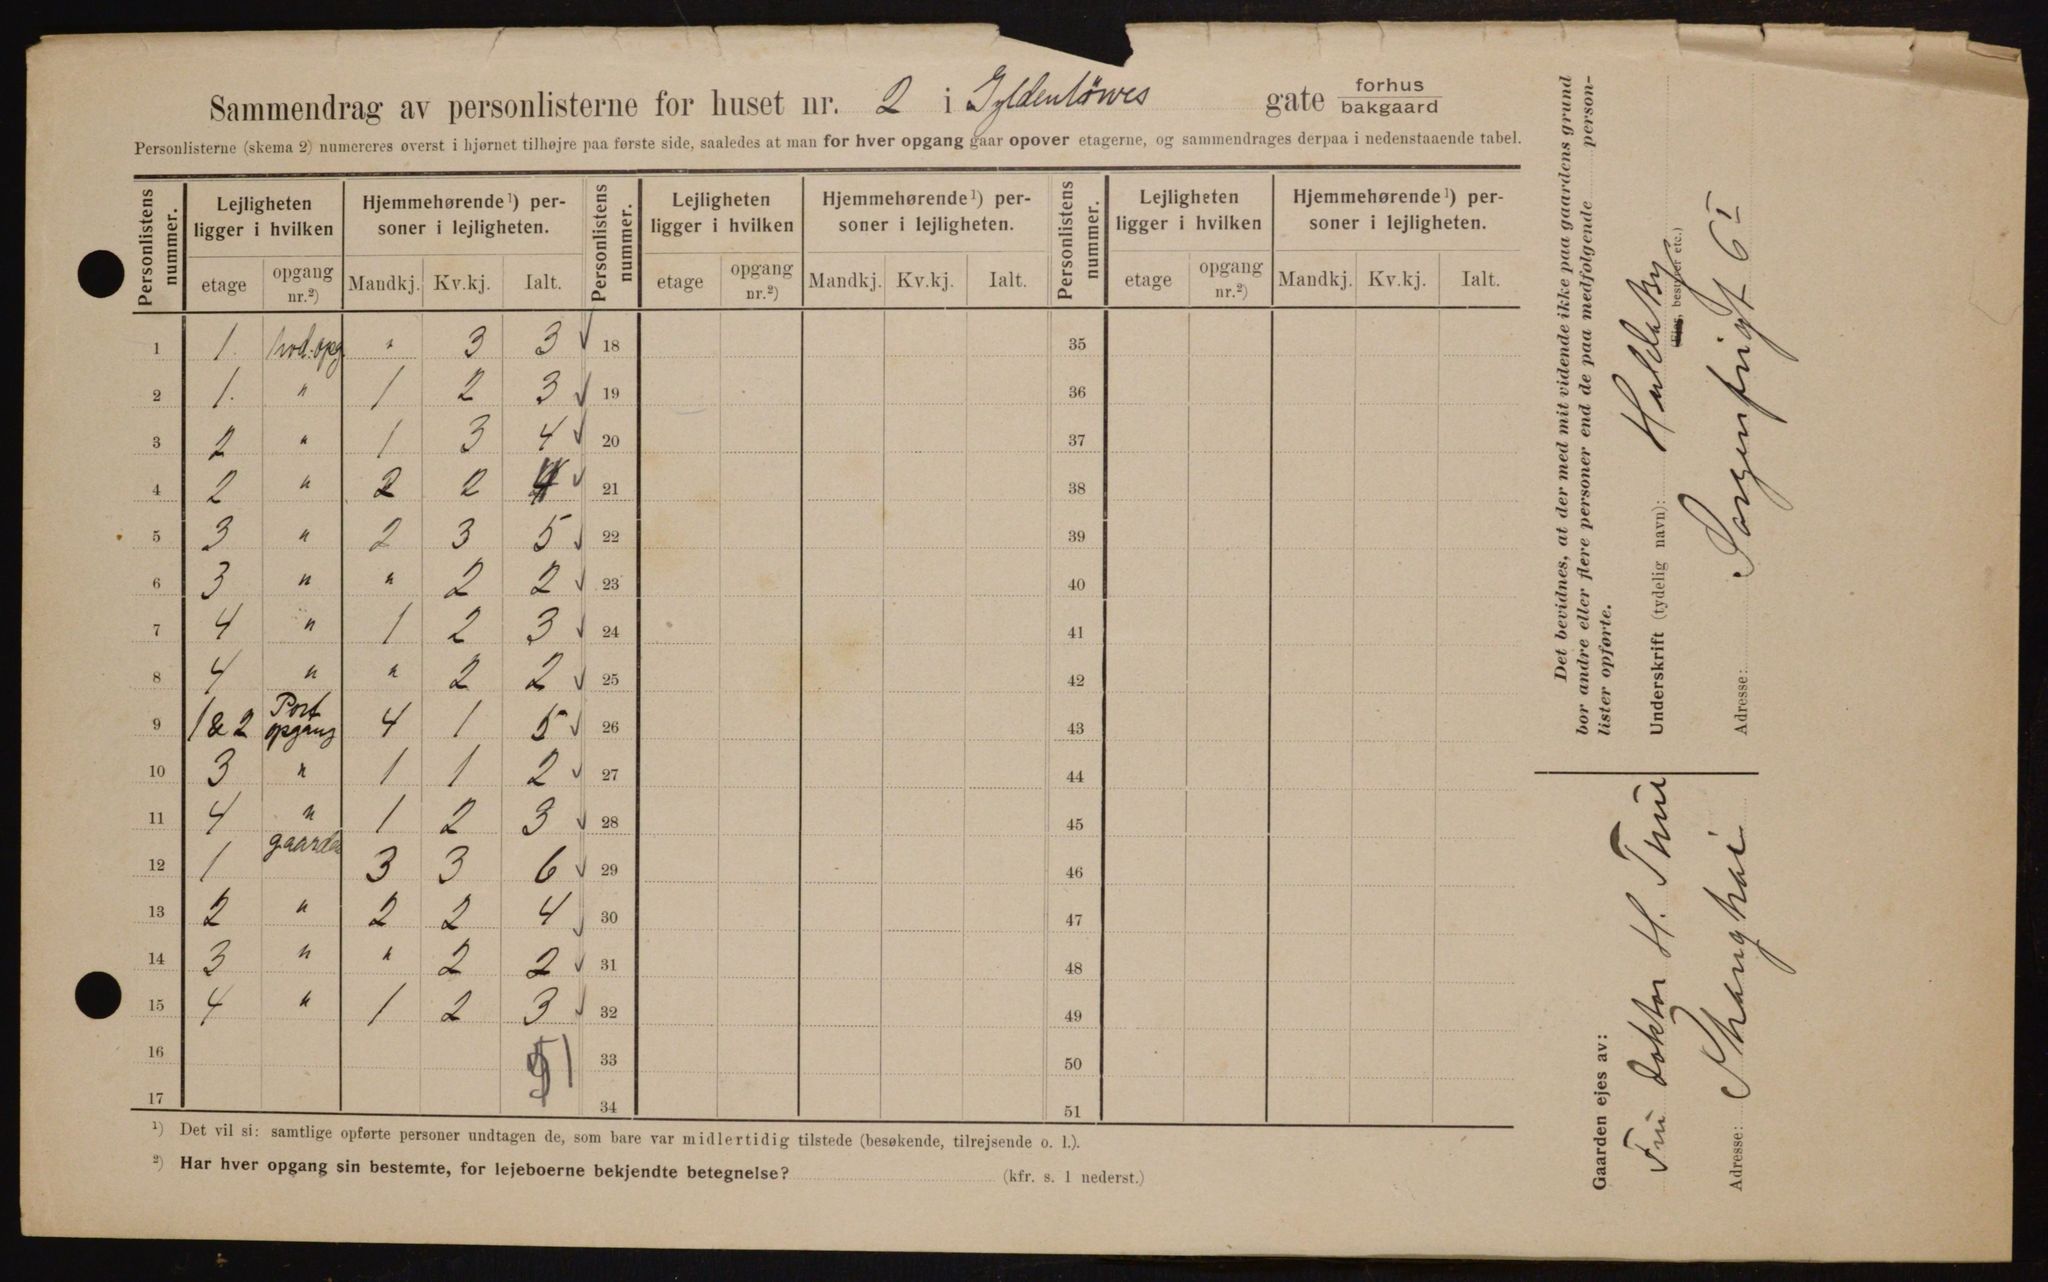 Sammendrag av personlisterne for huset nr. 2 i Gyldenløwes gate forhus bakgaard
Personlisterne (skema 2) numereres øverst i hjørnet tilhøjre paa første side, saaledes at man for hver opgang gaar opover etagerne, og sammendrages derpaa i nedenstaaende tabel.
Personlistens nummer. Lejligheten ligger i hvilken Hjemmehørende ¹) personer i lejligheten. Personlistens nummer. Lejligheten ligger i hvilken Hjemmehørende ¹) personer i lejligheten. Personlistens nummer. Lejligheten ligger i hvilken Hjemmehørende ¹) personer i lejligheten.
etage opgang nr.²) Mandkj. Kv.kj. Ialt. etage opgang nr.²) Mandkj. Kv.kj. Ialt. etage opgang nr.²) Mandkj. Kv.kj. Ialt.
1 1. hod.opg " 3 3 ✓ 18 35
2 1. " 1 2 3 ✓ 19 36
3 2 " 1 3 4 ✓ 20 37
4 2 " 2 2 4 ✓ 21 38
5 3 " 2 3 5 ✓ 22 39
6 3 " " 2 2 ✓ 23 40
7 4 " 1 2 3 ✓ 24 41
8 4 " " 2 2 ✓ 25 42
9 1 & 2 Port opgang 4 1 5 ✓ 26 43
10 3 " 1 1 2 ✓ 27 44
11 4 " 1 2 3 ✓ 28 45
12 1 gaarden 3 3 6 ✓ 29 46
13 2 " 2 2 4 ✓ 30 47
14 3 " " 2 2 ✓ 31 48
15 4 " 1 2 3 ✓ 32 49
16 51 33 50
17 34 51
¹) Det vil si: samtlige opførte personer undtagen de, som bare var midlertidig tilstede (besøkende, tilrejsende o. l.).
²) Har hver opgang sin bestemte, for lejeboerne bekjendte betegnelse? (kfr. s. 1 nederst.)
Det bevidnes, at der med mit vidende ikke paa gaardens grund
bor andre eller flere personer end de paa medfølgende personlister opførte.
Underskrift (tydelig navn): Huldaby
(Eier, bestyrer etc.)
Adresse: Sorgenfrigt 6 I
Gaarden ejes av:
Fru doktor H. Thue
Adresse: Shanghai